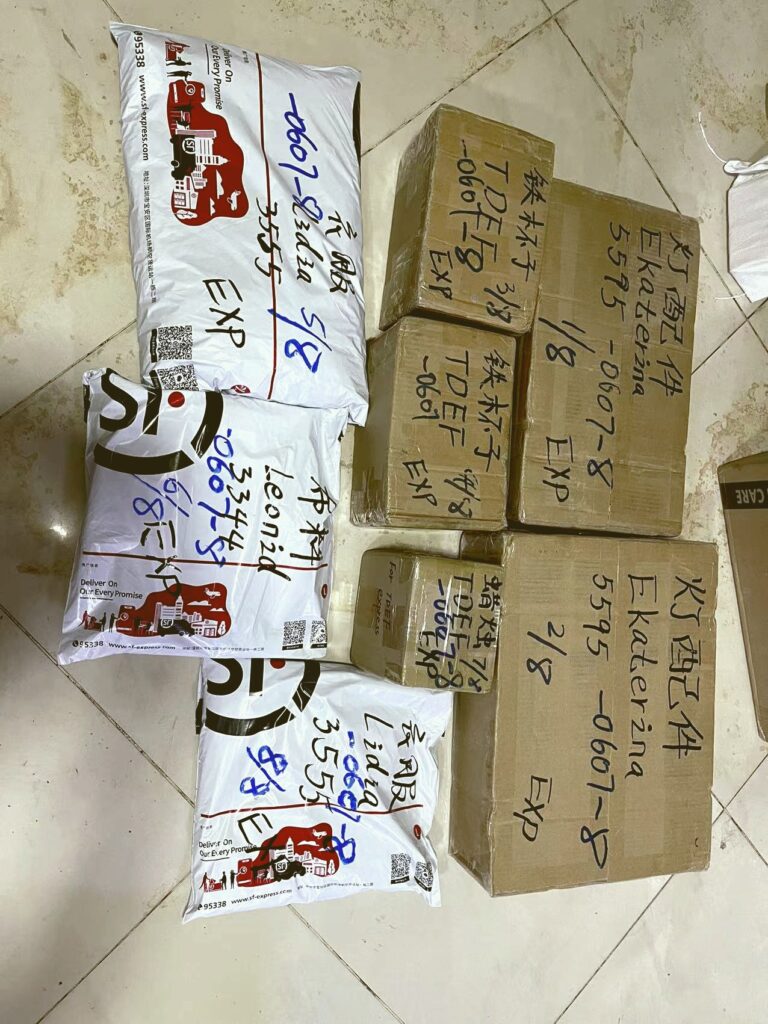 灯配件
Ekaterina
5595 -0607-8
1/8 EXP
铁杯子
TDEF 3/8
-0607-8
EXP
铁杯子
TDEF 4/8
-0607
EXP
灯配件
Ekaterina
5595 -0607-8
2/8 EXP
蜡烛 7/8
TDEF
-0607-8
EXP
for TDEF
Express
衣服
Lidia 5/8
-0607-8
3555
EXP
Deliver On
Our Every Promise
95338 www.sf-express.com
布料
Leonid
3344
-0607-8
6/8 EXP
SF
Deliver On
Our Every Promise
95338 www.sf-express.com
衣服
Lidia
-0607-8
3555
8/8 EXP
SF
Deliver On
Our Every Promise
95338 www.sf-express.com
CARE